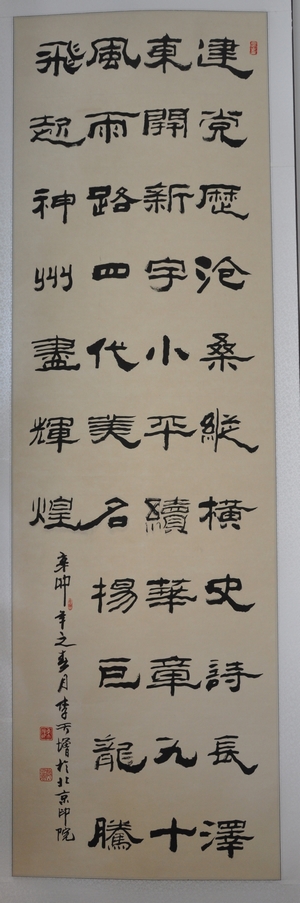 建党歷沧桑縱橫史詩長澤
東開新宇小平續華章九十
風雨路四代美名揚巨龍騰
飛起神州盡輝煌
辛卯年之春月李天增於北京印院